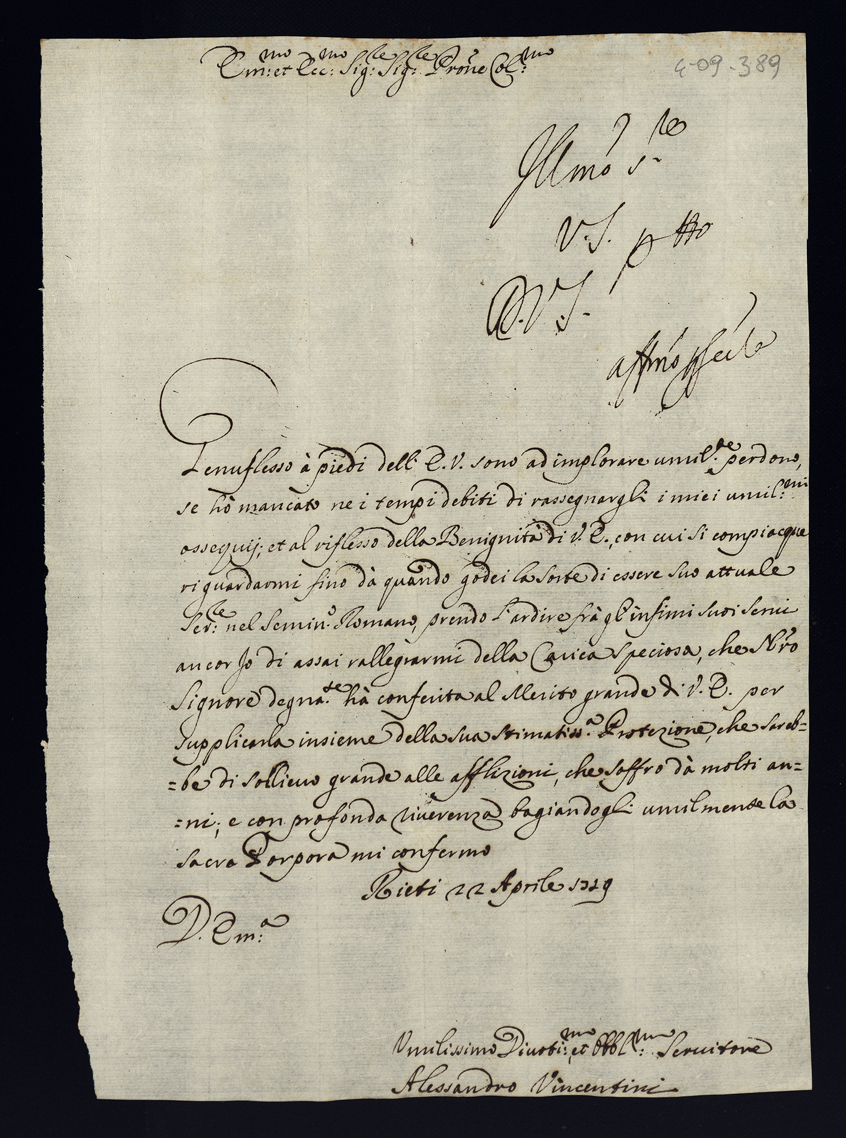 Em:mo et Ecc:mo Sig:re Sig:re Prōne Col:mo
4-09-389
Illmō s.re
V.S.
D.V.S.
affmō
Genuflesso à piedi dell' E.V. sono ad implorare umil:te perdono,
se hò mancato ne i tempi debiti di rassegnargli i miei umil:mi
ossequij; et al riflesso della Benignità di V.E., con cui si compiacque
riguardarmi fino dà quando godei la sorte di essere suo attuale
Ser:re nel Semin:o Romano, prendo l'ardire frà gl'infimi suoi servi
ancor Io di assai rallegrarmi della Carica speciosa, che Nrō
Signore degna:te hà conferita al Merito grande di V.E. per
supplicarla insieme della sua stimatiss:a Protezione, che sareb=
=be di sollievo grande alle afflizioni, che soffro dà molti an=
=ni; e con profonda riverenza bagiandogli umilmente la
sacra Porpora mi confermo
Rieti 22 Aprile 1719
D. Em:a
Umilissimo Divoti:mo et Obbl:mo Servitore
Alessandro Vincentini